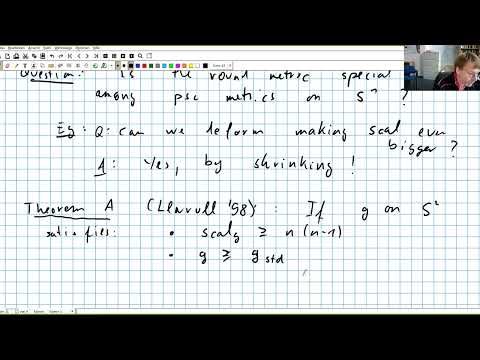 Question: Is the round metric special
among psc metrics on Sⁿ ?
Eg: Q: can we deform making scal even
bigger ?
A: Yes, by shrinking !
Theorem A (Llarull '98) : If g on S²
satisfies: • scal_g ≥ n(n-1)
• g ≥ g_std